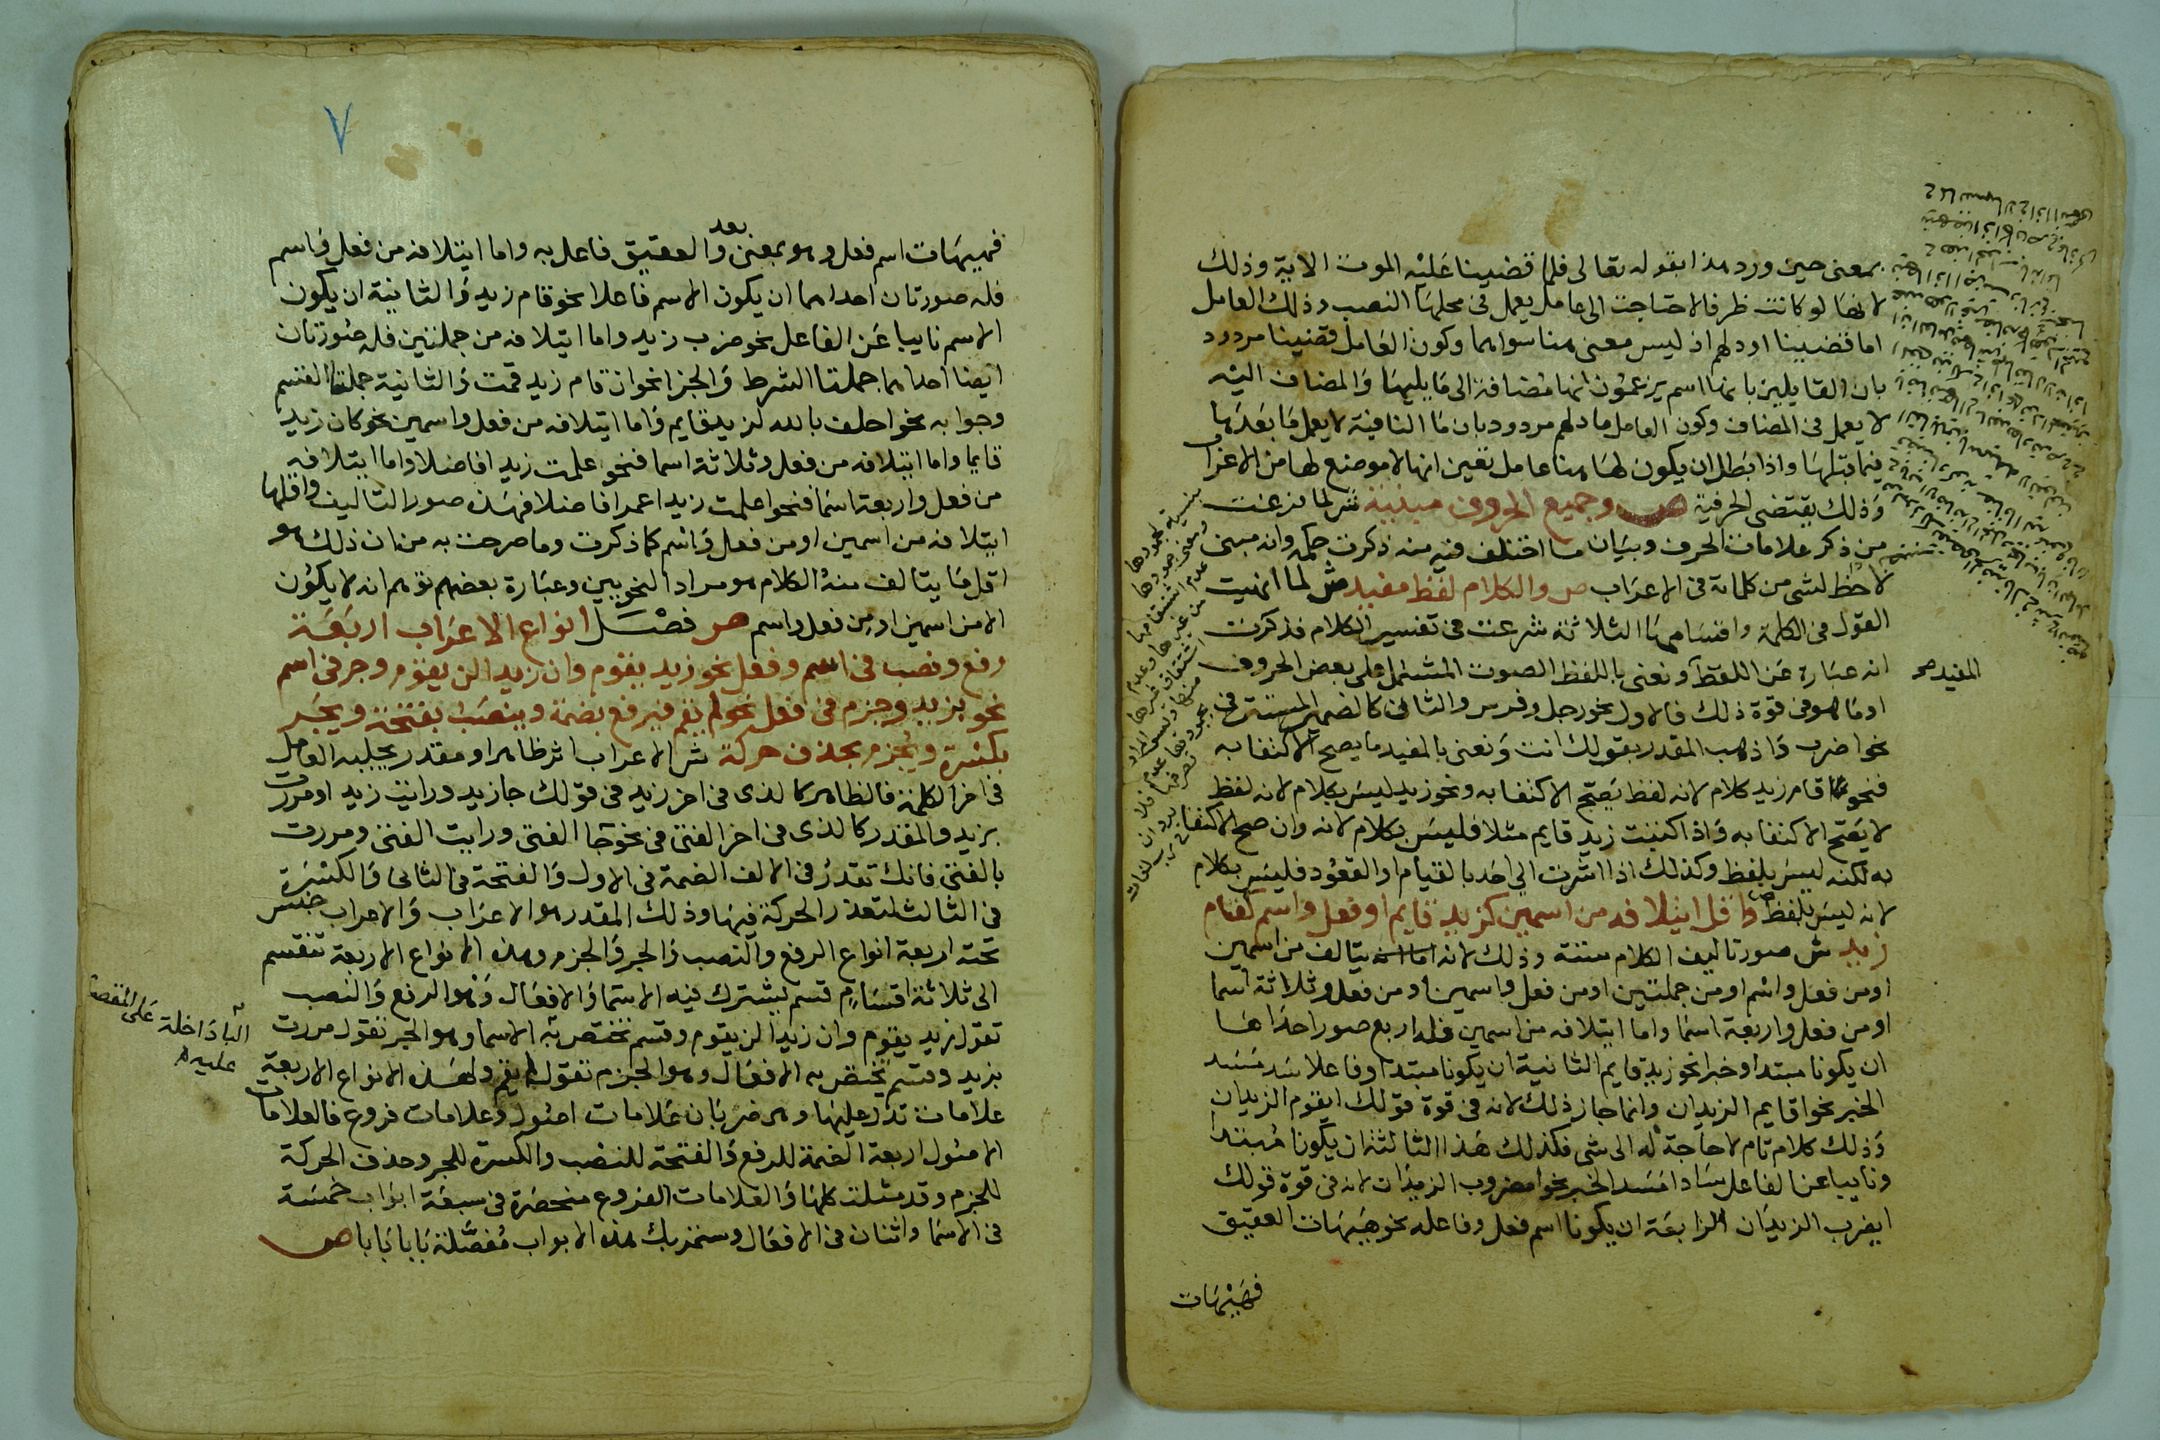 بمعنى حين ورد هذا بقوله تعالى فلما قضينا عليه الموت الاية وذلك
لانها لو كانت ظرفا لاحتاجت الى عامل يعمل في محلها النصب وذلك العامل
اما قضينا او دلهم اذ ليس معنى هنا سواهما وكون العامل قضينا مردود
بان القايلين بانها اسم يزعمون انها مضافة الى ما يليها والمضاف اليه
لا يعمل في المضاف وكون العامل ما دلهم مردود بان ما النافية لا يعمل ما بعدها
فيما قبلها واذا بطل ان يكون لها هنا عامل تعين انها لا موضع لها من الاعراب
وذلك يقتضي الحرفية ص وجميع الحروف مبنية ش لما فرغت
من ذكر علامات الحرف وبيان ما اختلف فيه منه ذكرت حكمه وانه مبني
لا حظ لشي من كلماته في الاعراب ص والكلام لفظ مفيد ش لما انهيت
القول في الكلمة واقسامها الثلاثة شرعت في تفسير الكلام فذكرت
انه عبارة عن اللفظ ونعني باللفظ الصوت المشتمل على بعض الحروف
المفيد صح
او ما هو في قوة ذلك فالاول نحو رجل وفرس والثاني كالضمير المستتر في
نحو اضرب واذهب المقدر بقولك انت ونعني بالمفيد ما يصح الاكتفا به
فنحو قام زيد كلام لانه لفظ يصح الاكتفا به ونحو زيد ليس بكلام لانه لفظ
لا يصح الاكتفا به واذا كتبت زيد قايم مثلا فليس بكلام لانه وان صح الاكتفا
به لكنه ليس بلفظ وكذلك اذا اشرت الى احد بالقيام او القعود فليس بكلام
لانه ليس بلفظ ص واقل ايتلافه من اسمين كزيد قايم او فعل واسم كقام
زيد ش صور تاليف الكلام ستة وذلك لانه يتالف من اسمين
او من فعل واسم او من جملتين او من فعل واسمين او من فعل وثلاثة اسما
او من فعل واربعة اسما واما ايتلافه من اسمين فله اربع صور احداها
ان يكونا مبتدا وخبرا نحو زيد قايم الثانية ان يكونا مبتدا وفاعلا سد مسد
الخبر نحو اقايم الزيدان وانما جاز ذلك لانه في قوة قولك ايقوم الزيدان
وذلك كلام تام لا حاجة له الى شي فكذلك هذا الثالثة ان يكونا مبتدا
ونايبا عن الفاعل سادا مسد الخبر نحو امضروب الزيدان لانه في قوة قولك
ايضرب الزيدان الرابعة ان يكونا اسم فعل وفاعله نحو هيهات العقيق
فهيهات
٧
فهيهات اسم فعل وهو بمعنى بعد والعقيق فاعل به واما ايتلافه من فعل واسم
فله صورتان احداهما ان يكون الاسم فاعلا نحو قام زيد والثانية ان يكون
الاسم نايبا عن الفاعل نحو ضرب زيد واما ايتلافه من جملتين فله صورتان
ايضا احداهما جملتا الشرط والجزا نحو ان قام زيد قمت والثانية جملتا القسم
وجوابه نحو احلف بالله لزيد قايم واما ايتلافه من فعل واسمين نحو كان زيد
قايما واما ايتلافه من فعل وثلاثة اسما فنحو علمت زيدا فاضلا واما ايتلافه
من فعل واربعة اسما فنحو اعلمت زيدا عمرا فاضلا فهذه صور التاليف واقلها
ايتلافه من اسمين او من فعل واسم كما ذكرت وما صرحت به من ان ذلك هو
اقل ما يتالف منه الكلام هو مراد النحويين وعبارة بعضهم توهم انه لا يكون
الا من اسمين او من فعل واسم ص فصل انواع الاعراب اربعة
رفع ونصب في اسم وفعل نحو زيد يقوم وان زيدا لن يقوم وجر في اسم
نحو بزيد وجزم في فعل نحو لم يقم فيرفع بضمة وينصب بفتحة ويجر
بكسرة ويجزم بحذف حركة ش الاعراب اثر ظاهر او مقدر يجلبه العامل
في اخر الكلمة فالظاهر كالذي في اخر زيد في قولك جا زيد ورايت زيدا ومررت
بزيد والمقدر كالذي في اخر الفتى في نحو جا الفتى ورايت الفتى ومررت
بالفتى فانك تقدر في الالف الضمة في الاول والفتحة في الثاني والكسرة
في الثالث لتعذر الحركة فيها وذلك المقدر هو الاعراب والاعراب جنس
تحته اربعة انواع الرفع والنصب والجر والجزم وهذه الانواع الاربعة تنقسم
الى ثلاثة اقسام قسم يشترك فيه الاسما والافعال وهو الرفع والنصب
تقول زيد يقوم وان زيدا لن يقوم وقسم تختص به الاسما وهو الجر تقول مررت
الباء داخلة على المقصور
عليه
بزيد وقسم يختص به الافعال وهو الجزم تقول لم يقم ولهذه الانواع الاربعة
علامات تدل عليها وهي ضربان علامات اصول وعلامات فروع فالعلامات
الاصول اربعة الضمة للرفع والفتحة للنصب والكسرة للجر وحذف الحركة
للجزم وقد مثلت كلها والعلامات الفروع منحصرة في سبعة ابواب خمسة
في الاسما واثنان في الافعال وستمر بك هذه الابواب مفصلة بابا بابا ص